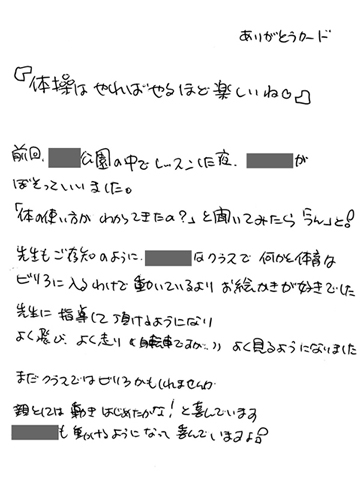 ありがとうカード
『体操は やればやるほど楽しいね♡』
前回、公園の中でレッスンした夜、が
ぼそっといいました。
「体の使い方が わかってきたの?」と聞いてみたら「うん」と!
先生もご存知のように、はクラスで 何かと体育な
ビリろに入るわけで 動いているより お絵かきが好きでした
先生に 指導して頂けるようになり
よく遊び、よく走り (自転車ですが…) よく見るようになりました
まだクラスではビリろかもしれませんが
親としては 動きはじめたかな! と喜んでいます
も 動けるようになって 喜んでいますよ!